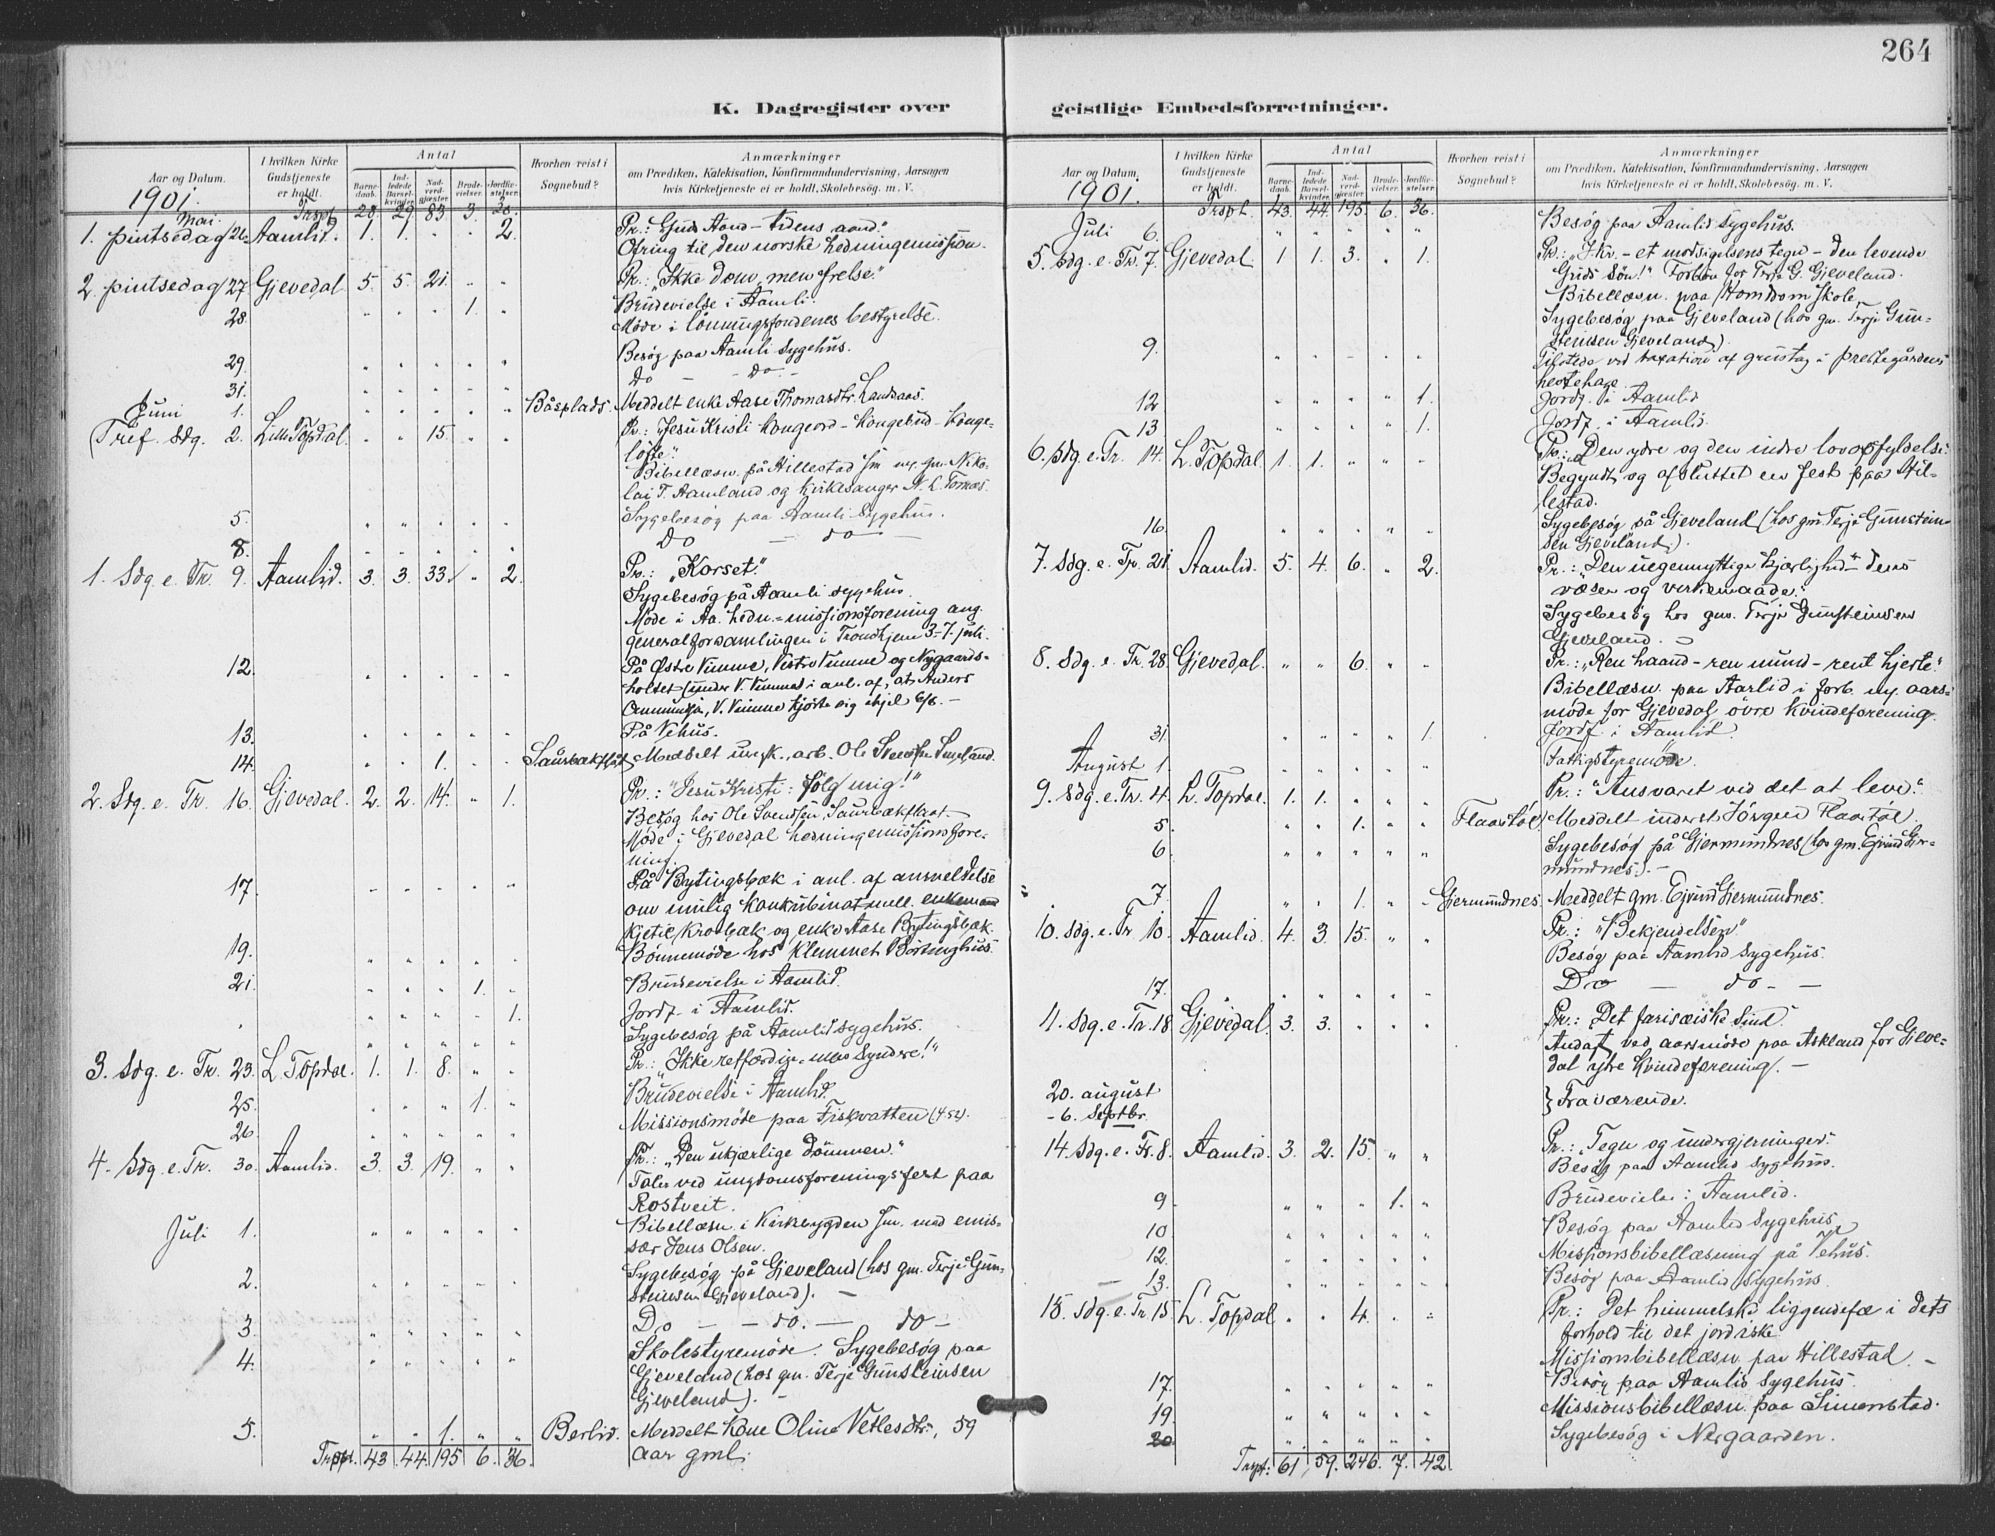 264
K. Dagregister over
Aar og Datum.
I hvilken Kirke Gudstjeneste er holdt.
Antal
Barnedaab. Indledede Barselkvinder. Nadverdgjæster. Brudevielser. Jordfæstelser.
Hvorhen reist i Sognebud?
Anmærkninger
om Prædiken, Katekisation, Konfirmandundervisning, Aarsagen
hvis Kirketjeneste ei er holdt, Skolebesög. m. V.
1901. Trspt. 28. 29. 83. 3.
1. pintsedag mai 26. Aamlid. 1. 1. " " 2. Pr.: "Guds Aand - tidens aand."
Ofring til den norske hedningemission.
2. pintsedag 27 Gjevedal 5. 5. 21. " " Pr.: "Ikke döm, men frelse."
28. " " " 1. " Brudevielse i Aamli.
Möde i lönningsfondenes bestyrelse.
29. " " " " " Besög paa Aamli sygehus.
31. " " " " " Do - do -
Juni 1. " " " " " Båsplads. Meddelt enke Aase Thomasdtr. Landaas.
Tref. Sdg. 2. Lille Topdal. " " 15. " " Pr.: "Jesu Kristi kongeord - kongebud - kongelöfte."
Bibellæsn. på Hillestad sm. m. gm. Nikolai T. Aamland og kirkesanger N. L. Tornæs.
5. " " " " " Sygebesög paa Aamli Sygehus.
8. " " " " " Do - do -
1. Sdg. e. Tr. 9. Aamlid. 3. 3. 33. " 2. Pr.: "Korset."
Sygebesög på Aamli sygehus.
Möde i Aa. hedn.-missionsforening ang.
generalforsamlingen i Trondhjem 3-7. juli.
12. " " " " " På Östre Vimme, Vestre Vimme og Nygaardsholtet (under V. Vimme) i anl. af, at Anders
V. Vimme kjörte sig ihjel 6/6. -
13. " " " " " På Vehus.
14. " " 1. " " Saurbækflåt Meddelt
2. Sdg. e. Tr. 16. Gjevedal. 2. 2. 14. " 1. Pr.: "Jesu Kristi: Fölg mig!"
Besög hos Ole Svendsen, Saurbækflaat.
Möde i Gjevedal hedningemissionsforening.
17. " " " " " På Bytingsbæk i anl. af anmeldelse
om mulig konkubinat mell. enkemand
Kjetil Krosbæk og enke Aase Bytingsbæk.
19. " " " " " Bönnemöde hos Klemmet Börtinghus.
21. " " " 1. " Brudevielse i Aamlid.
" " " " " 1. Jordf. i Aamlid.
" " " " " Sygebesög på Aamlid sygehus.
3. Sdg. e. Tr. 23. L. Topdal. 1. 1. 8. " " Pr.: "Ikke retfærdige - men Syndere!"
25. " " " 1. " Brudevielse i Aamlid.
26. " " " " " Missionsmöde paa Fiskvatten (4 st).
4. Sdg. e. Tr. 30. Aamlid. 3. 3. 19. " " Pr.: "Den ukjærlige dömmen."
Taler ved ungdomsforeningsfest paa
Rostveit.
Juli 1. " " " " " Bibellæsn. i Kirkebygden sm. med emissær Jens Olsen.
2. " " " " " Sygebesög på Gjeveland (hos gm. Terje Gunsteinsen Gjeveland). -
3. " " " " " Do - - do. - do -
4. " " " " " Skolestyremöde. Sygebesög paa
Gjeveland (hos gm. Terje Gunsteinsen
Gjeveland). -
5. " " 1. " " Berlid. Meddelt Kone Oline Vetlesdtr., 59
Aar gml.
Trspt. 43 44. 195 6. 36.
geistlige Embedsforretninger.
Aar og Datum.
I hvilken Kirke Gudstjeneste er holdt.
Antal
Barnedaab. Indledede Barselkvinder. Nadverdgjæster. Brudevielser. Jordfæstelser.
Hvorhen reist i Sognebud?
Anmærkninger
om Prædiken, Katekisation, Konfirmandundervisning, Aarsagen
hvis Kirketjeneste ei er holdt, Skolebesög. m. V.
1901. Trspt. 43. 44. 195. 6. 36.
Juli 6. " " " " " Besög paa Aamlid sygehus.
5. Sdg. e. Tr. 7. Gjevedal. 1 1. 3. " 1. Pr.: "Jkr. - et modsigelsens tegn - den levende
Guds Sön!" Forbön for Terje G. Gjeveland.
Bibellæsn. paa Homdrom skole.
Sygebesög paa Gjeveland (hos gm. Terje Gunsteinsen Gjeveland).
9. " " " " " Tilstede ved taxation af grustag i prestegårdens
hestehave.
12 " " " " 1. Jordf. i Aamlid
13 " " " " 1. Jordf. i Aamlid.
6. Sdg. e. Tr. 14. L. Topdal. 1. 1. " " " Pr.: "Den ydre og den indre lovopfyldelse."
Begyndt og afsluttet en fest paa Hillestad.
16. " " " " " Sygebesög på Gjeveland (hos gm. Terje Gunsteinsen Gjeveland).
7. Sdg. e. Tr. 21 Aamlid. 5. 4. 6. " 2. Pr.: "Den uegennyttige kjærlighed - dens
væsen og virkemaade."
Sygebesög hos gm. Terje Gunsteinsen
Gjeveland. -
8. Sdg. e. Tr. 28. Gjevedal. " " 6. " " Pr.: "Ren haand - ren mund - rent hjerte."
Bibellæsn. paa Aarlid i forb. m. aarsmöde for Gjevedal övre Kvindeforening.
31. " " " " 1. Jordf. i Aamlid.
August 1. " " " " " Fattigstyremöde.
9. Sdg. e. Tr. 4. L. Topdal. 1. 1. " " " Pr.: "Ansvaret ved det at leve."
5. " " 1. " " Flaastöl Meddelt inderst Jörgen Flaastöl.
6. " " " " " Sygebesög på Gjermundnes (hos gm. Ejvind Gjermundnes). -
7. " " 1. " " Gjermundnes. Meddelt gm. Ejvind Gjermundnes.
10. Sdg. e. Tr. 10. Aamlid. 4. 3. 15. " " Pr.: "Bekjendelsen"
Besög paa Aamlid Sygehus.
17. " " " " " Do - do - -
11. Sdg. e. Tr. 18. Gjevedal. 3. 3. " " " Pr.: "Det farisæiske Sind."
Andagt ved aarsmöde paa Askland for Gjevedal ytre Kvindeforening. -
20. august
- 6. Septbr. } Fraværende.
14. Sdg. e. Tr. 8. Aamlid. 3. 2. 15. " " Pr.: "Tegn og undergjerninger."
Besög paa Aamlid Sygehus.
9 " " " 1. " Brudevielse i Aamlid.
10 " " " " " Besög paa Aamlid Sygehus.
12. " " " " " Missionsbibellæsning på Vehus.
- 13. " " " " " Besög paa Aamlid Sygehus.
15. Sdg. e. Tr. 15. L. Topdal " " 4. " " Pr.: "Det himmelske liggendefæ i dets
forhold til det jordiske.
Missionsbibellæsn. paa Hillestad. -
17. " " " " " Besög paa Aamlid Sygehus.
19 " " " " " Missionsbibellæsn. paa Simonstad.
20 " " " " " Sygebesög i Nergaarden.
Trspt: 61 59. 246. 7. 42